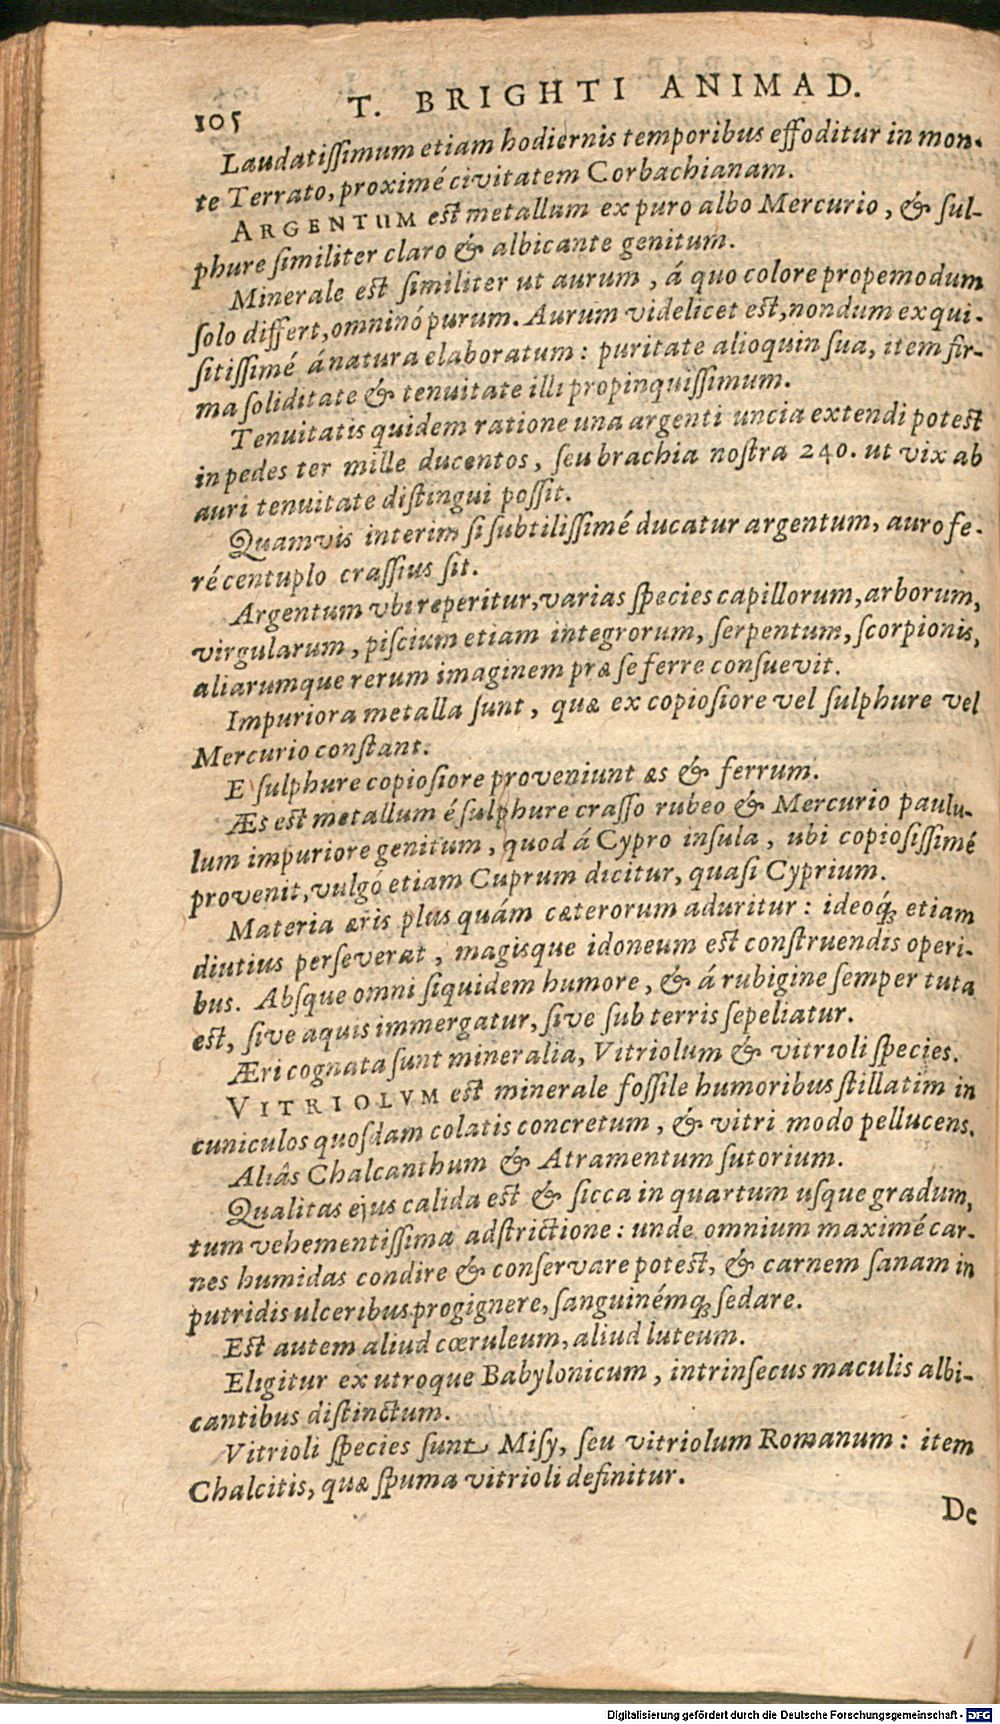 105 T. BRIGHTI ANIMAD.
Laudatiſſimum etiam hodiernis temporibus effoditur in mon-
te Terrato, proximé civitatem Corbachianam.
ARGENTUM est metallum ex puro albo Mercurio, & ſul-
phure ſimiliter claro & albicante genitum.
Minerale est ſimiliter ut aurum, á quo colore propemodum
ſolo differt, omninó purum. Aurum videlicet est, nondum exqui-
ſitiſſimé á natura elaboratum: puritate alioquin ſua, item fir-
ma ſoliditate & tenuitate illi propinquiſſimum.
Tenuitatis quidem ratione una argenti uncia extendi potest
in pedes ter mille ducentos, ſeu brachia noſtra 240. ut vix ab
auri tenuitate diſtingui poſſit.
Quamvis interim ſi ſubtiliſſimé ducatur argentum, auro fe-
ré centuplo craſſius ſit.
Argentum vbi reperitur, varias ſpecies capillorum, arborum,
virgularum, piſcium etiam integrorum, ſerpentum, ſcorpionis,
aliarumque rerum imaginem præ ſe ferre conſuevit.
Impuriora metalla ſunt, quæ ex copioſiore vel ſulphure vel
Mercurio conſtant.
E ſulphure copioſiore proveniunt æs & ferrum.
Æs est metallum é ſulphure craſſo rubeo & Mercurio paulu-
lum impuriore genitum, quod á Cypro inſula, ubi copioſiſſimé
provenit, vulgó etiam Cuprum dicitur, quaſi Cyprium.
Materia æris plus quám cæterorum aduritur: ideoq́; etiam
diutius perſeverat, magisque idoneum est conſtruendis operi-
bus. Absque omni ſiquidem humore, & á rubigine ſemper tuta
est, ſive aquis immergatur, ſive ſub terris ſepeliatur.
Æri cognata ſunt mineralia, Vitriolum & vitrioli ſpecies.
VITRIOLVM est minerale foſſile humoribus ſtillatim in
cuniculos quoſdam colatis concretum, & vitri modo pellucens.
Aliâs Chalcanthum & Atramentum ſutorium.
Qualitas ejus calida est & ſicca in quartum usque gradum,
tum vehementiſſima adſtrictione: unde omnium maximé car-
nes humidas condire & conſervare potest, & carnem ſanam in
putridis ulceribus progignere, ſanguinémq́; ſedare.
Est autem aliud cœruleum, aliud luteum.
Eligitur ex utroque Babylonicum, intrinſecus maculis albi-
cantibus diſtinctum.
Vitrioli ſpecies ſunt Miſy, ſeu vitriolum Romanum: item
Chalcitis, quæ ſpuma vitrioli definitur.
De
Digitalisierung gefördert durch die Deutsche Forschungsgemeinschaft - DFG